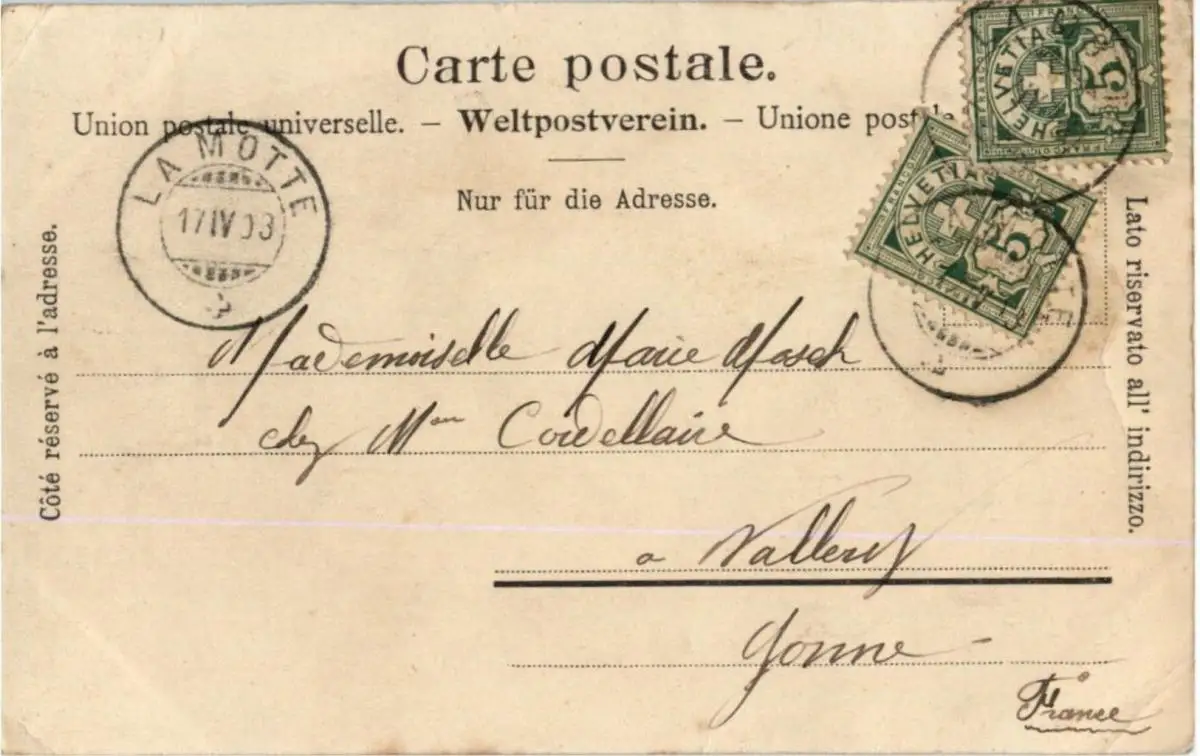 Carte postale.
Union postale universelle. – Weltpostverein. – Unione postale
Nur für die Adresse.
Côté réservé à l'adresse.
Lato riservato all' indirizzo.
LA MOTTE
17 IV 03
FRANCO
HELVETIA
5
FRANCO
HELVETIA
5
Mademoiselle Marie Mosek
chez Mme Cordellaire
a Vallery
Yonne
France